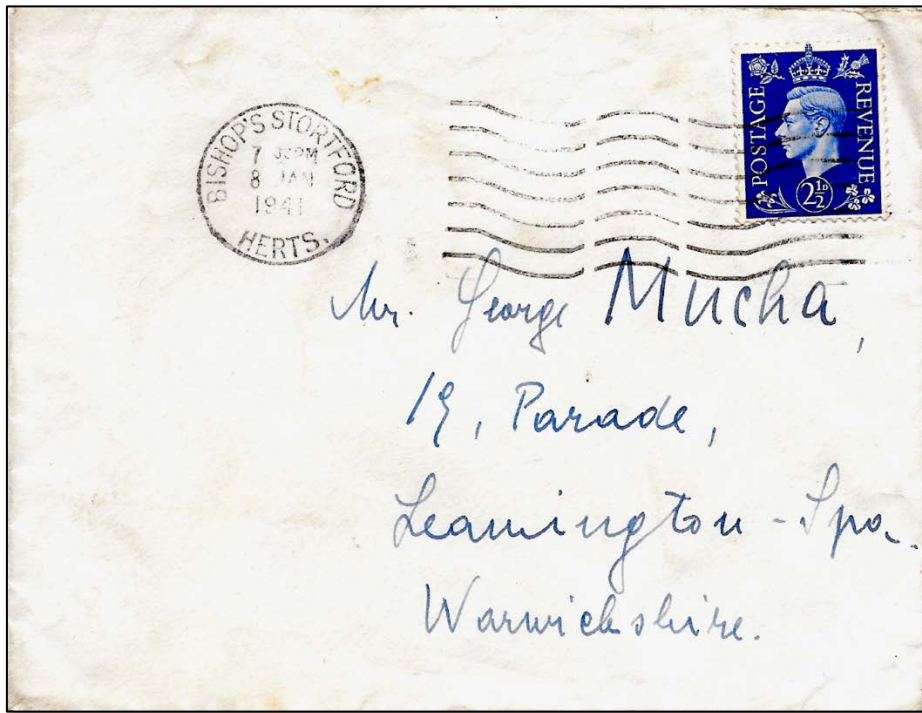 BISHOP'S STORTFORD
7 PM
8 JAN
1941
HERTS.
POSTAGE
REVENUE
2½D
Mr. George Mucha,
19, Parade,
Leamington-Spa.
Warwickshire.